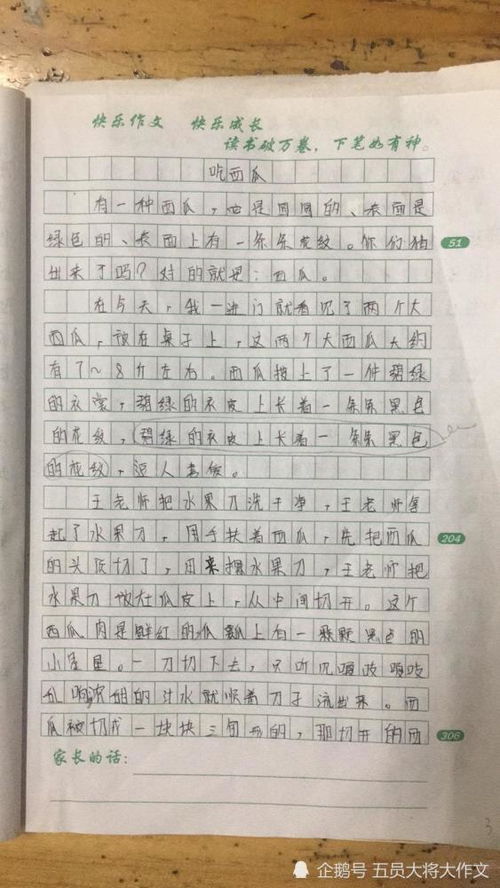 快乐作文 快乐成长
读书破万卷，下笔如有神。
吃西瓜
有一种西瓜，它是圆圆的、表面是
绿色的、表面上有一条条花纹。你们猜
51
出来了吗？对的就是：西瓜。
在今天，我一进门就看见了两个大
西瓜，放在桌子上，这两个大西瓜大约
有7~8斤左右。西瓜披上了一件碧绿
的衣裳，碧绿的衣皮上长着一条条黑色
的花纹，碧绿的衣皮上长着一条条黑色
的花纹，逗人喜爱。
王老师把水果刀洗干净，王老师拿
起了水果刀，用手扶着西瓜，先把西瓜
204
的头低切了，用来擦水果刀，王老师把
水果刀放在瓜皮上，从中间切开。这个
西瓜肉是鲜红的瓜瓤上有一颗颗黑色的
小星星。一刀切下去，只听见
乱响 的汁水就顺着刀子流出来。西
瓜被切成一块块三角形的，那切开的西
306
家长的话：
企鹅号 五员大将大作文